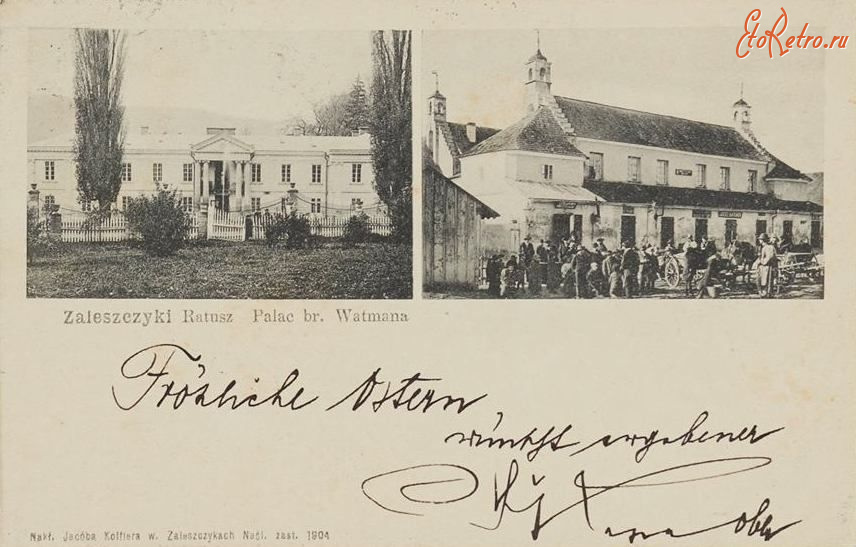 EtoRetro.ru
Zaleszczyki Ratusz Pałac br. Watmana
Fröhliche Ostern,
wünscht ergebener
Nakł. Jacóba Kolfiera w. Zaleszczykach Naśl. zast. 1904